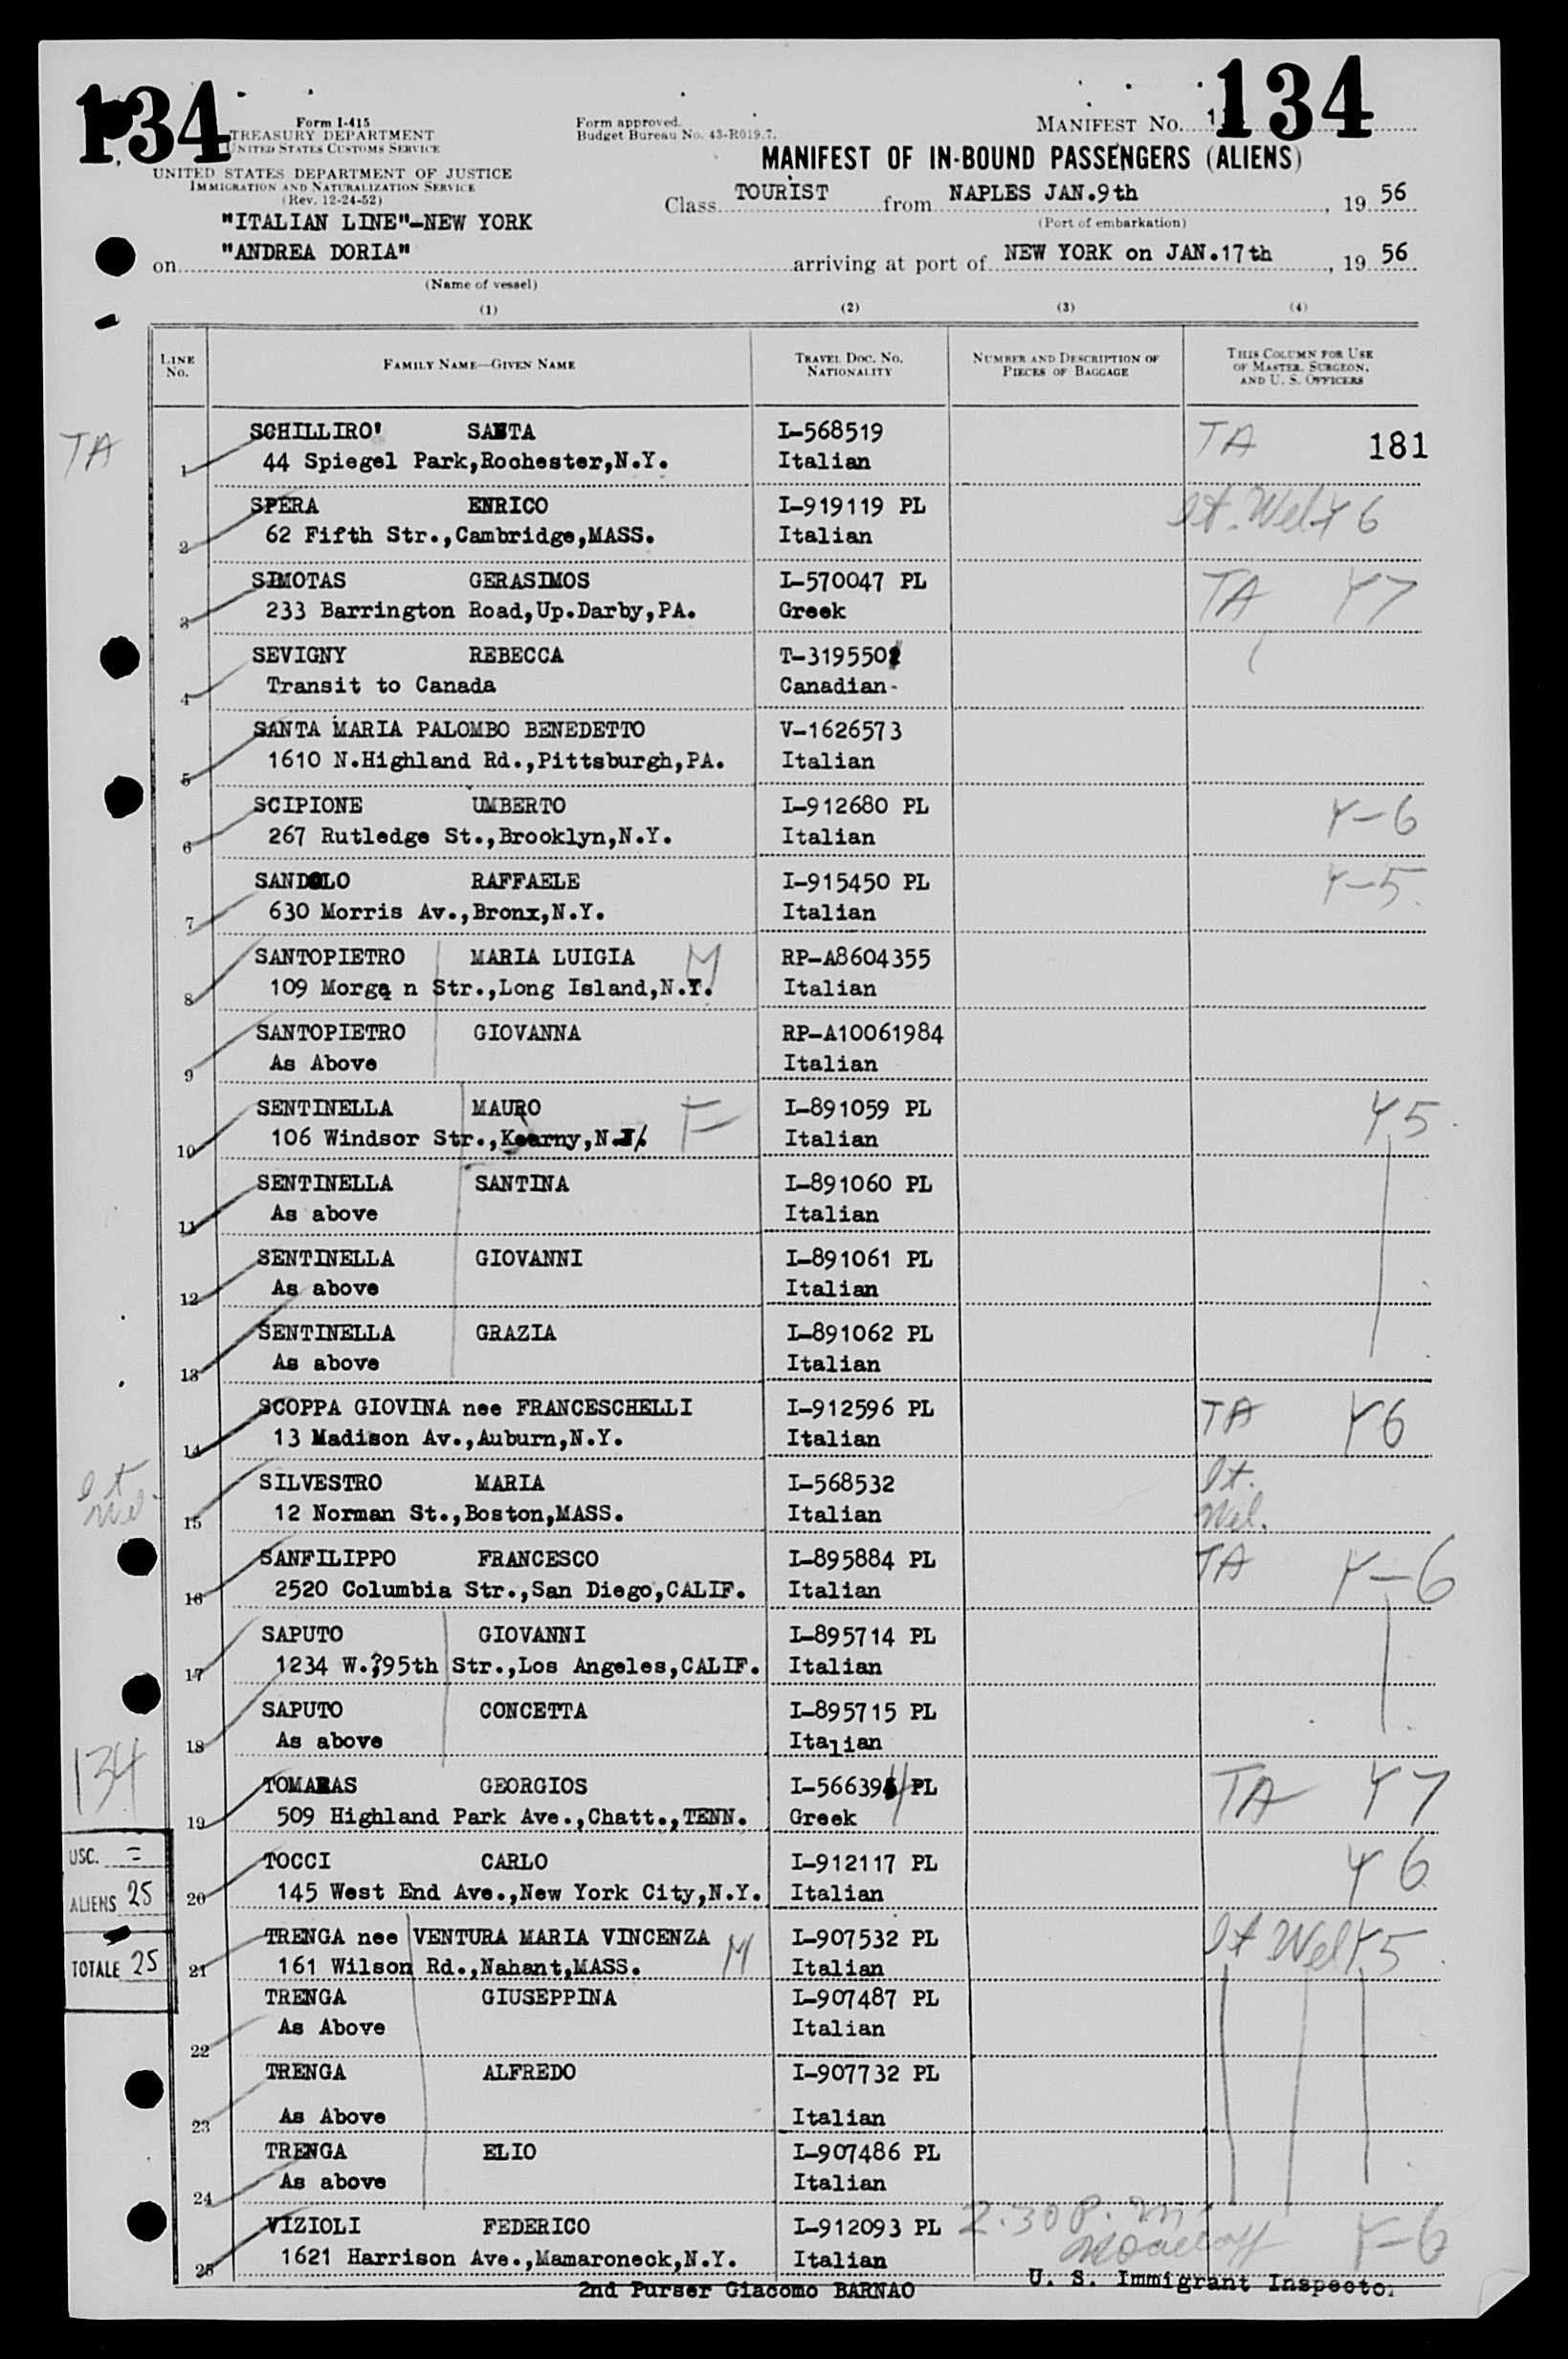 134
134
Form I-415
TREASURY DEPARTMENT
UNITED STATES CUSTOMS SERVICE
UNITED STATES DEPARTMENT OF JUSTICE
IMMIGRATION AND NATURALIZATION SERVICE
(Rev. 12-24-52)
Form approved.
Budget Bureau No. 43-R019.7.
MANIFEST NO.
MANIFEST OF IN-BOUND PASSENGERS (ALIENS)
Class TOURIST from NAPLES JAN.9th, 19 56
(Port of embarkation)
"ITALIAN LINE"-NEW YORK
on "ANDREA DORIA" arriving at port of NEW YORK on JAN.17th, 19 56
(Name of vessel)
(1) (2) (3) (4)
LINE NO. FAMILY NAME—GIVEN NAME TRAVEL DOC. NO. NATIONALITY NUMBER AND DESCRIPTION OF PIECES OF BAGGAGE THIS COLUMN FOR USE OF MASTER, SURGEON, AND U. S. OFFICERS
TA
SCHILLIRO' SANTA I-568519 TA 181
1 44 Spiegel Park,Rochester,N.Y. Italian
SPERA ENRICO I-919119 PL It. Wel Y 6
2 62 Fifth Str.,Cambridge,MASS. Italian
SIMOTAS GERASIMOS I-570047 PL TA Y7
3 233 Barrington Road,Up.Darby,PA. Greek
SEVIGNY REBECCA T-319550
4 Transit to Canada Canadian-
SANTA MARIA PALOMBO BENEDETTO V-1626573
5 1610 N.Highland Rd.,Pittsburgh,PA. Italian
SCIPIONE UMBERTO I-912680 PL Y-6
6 267 Rutledge St.,Brooklyn,N.Y. Italian
SANDOLO RAFFAELE I-915450 PL Y-5
7 630 Morris Av.,Bronx,N.Y. Italian
SANTOPIETRO MARIA LUIGIA M RP-A8604355
8 109 Morga n Str.,Long Island,N.Y. Italian
SANTOPIETRO GIOVANNA RP-A10061984
9 As Above Italian
SENTINELLA MAURO F I-891059 PL Y5
10 106 Windsor Str.,Kearny,N.J. Italian
SENTINELLA SANTINA I-891060 PL
11 As above Italian
SENTINELLA GIOVANNI I-891061 PL
12 As above Italian
SENTINELLA GRAZIA I-891062 PL
13 As above Italian
SCOPPA GIOVINA nee FRANCESCHELLI I-912596 PL TA Y6
14 13 Madison Av.,Auburn,N.Y. Italian
It. Wel.
SILVESTRO MARIA I-568532 It. Wel.
15 12 Norman St.,Boston,MASS. Italian
SANFILIPPO FRANCESCO I-895884 PL TA Y-6
16 2520 Columbia Str.,San Diego,CALIF. Italian
SAPUTO GIOVANNI I-895714 PL
17 1234 W.,95th Str.,Los Angeles,CALIF. Italian
SAPUTO CONCETTA I-895715 PL
18 As above Italian
134
TOMARAS GEORGIOS I-566394 PL TA Y7
19 509 Highland Park Ave.,Chatt.,TENN. Greek
USC. =
ALIENS 25
TOTALE 25
TOCCI CARLO I-912117 PL Y6
20 145 West End Ave.,New York City,N.Y. Italian
TRENGA nee VENTURA MARIA VINCENZA M I-907532 PL It Wel Y5
21 161 Wilson Rd.,Nahant,MASS. Italian
TRENGA GIUSEPPINA I-907487 PL
22 As Above Italian
TRENGA ALFREDO I-907732 PL
23 As Above Italian
TRENGA ELIO I-907486 PL
24 As above Italian
VIZIOLI FEDERICO I-912093 PL 2.30 P.m. Y-6
25 1621 Harrison Ave.,Mamaroneck,N.Y. Italian
2nd Purser Giacomo BARNAO U. S. Immigrant Inspector